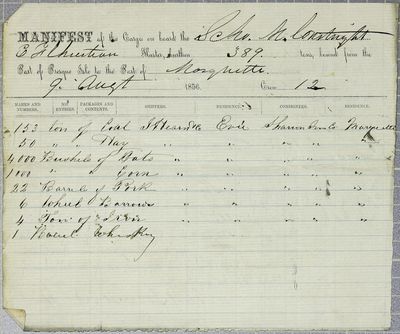 MANIFEST of the Cargo on board the Scho. M. Courtright
B H Christian Master, burthen 389 tons, bound from the
Port of Presque Isle to the Port of Marquette
9 Augt 1856. Crew 12
MARKS AND NUMBERS. NO. ENTRIES. PACKAGES AND CONTENTS. SHIPPERS. RESIDENCE. CONSIGNEES. RESIDENCE.
153 Ton of Coal J Hearn & Co Erie Marquette
50 " " Hay " " " " "
4000 Bushels of Oats " " " " "
1000 " " Corn " " " " "
22 Barrels of Pork " " " " "
6 Wheel Barrows " " " " "
4 Ton of Iron " " " " "
1 Barrel Whiskey